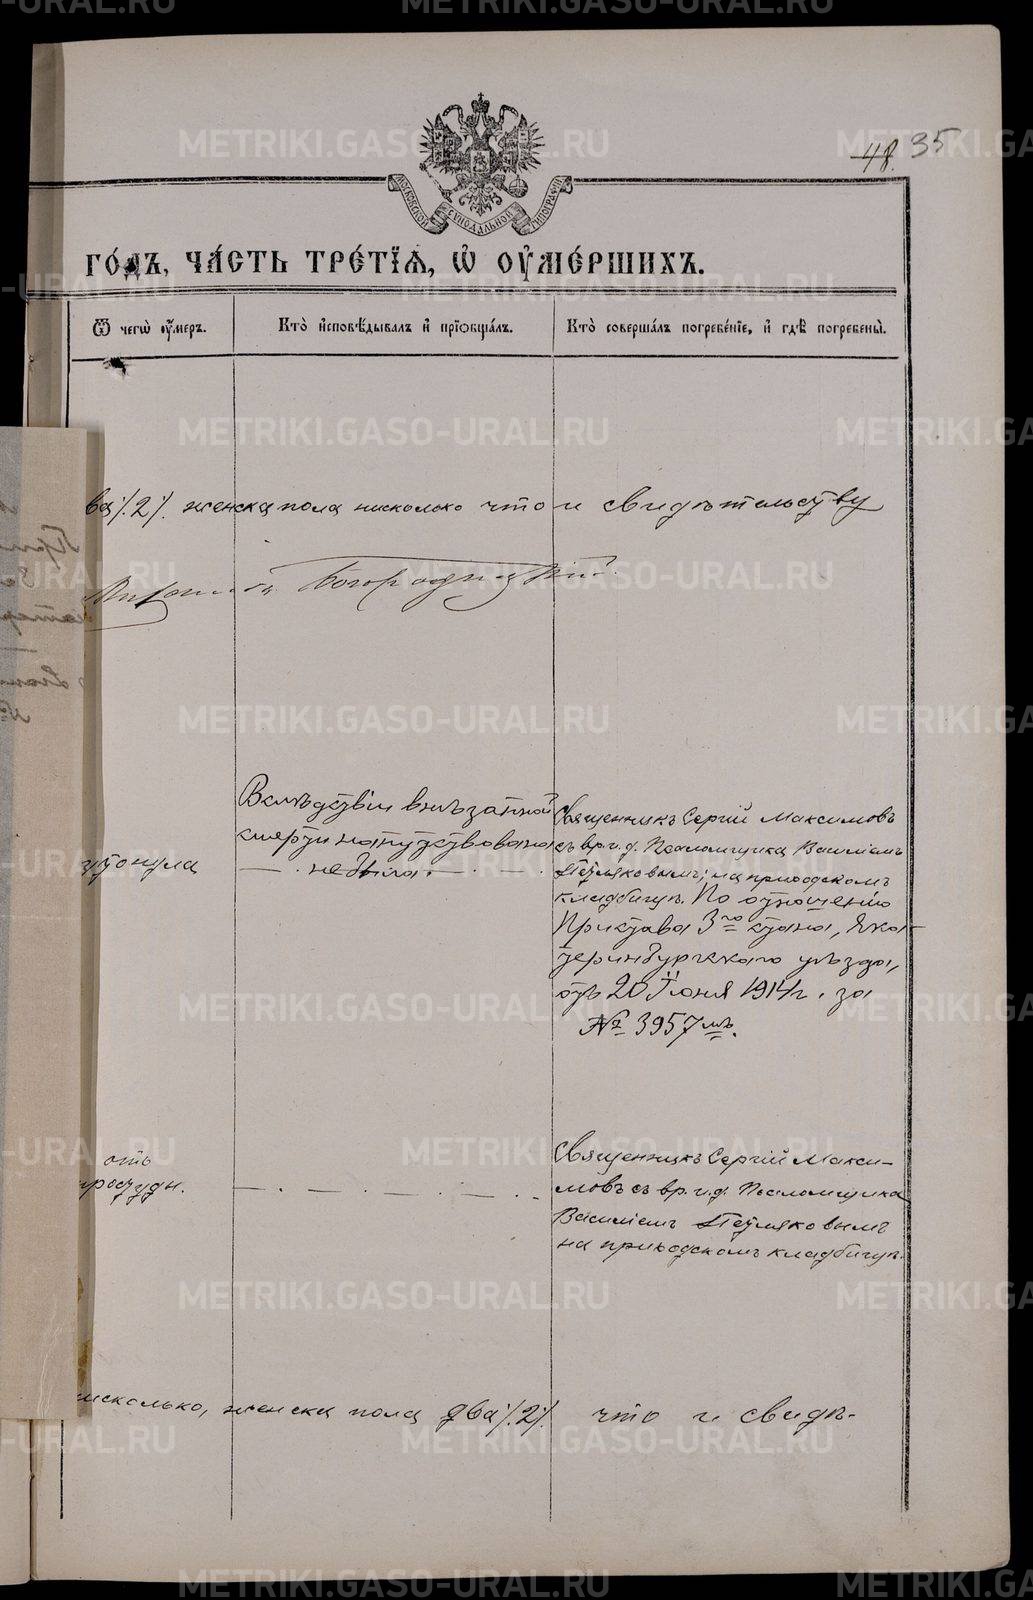 48. 35
МОСКОВСКОЙ СѴНОДАЛЬНОЙ ТИПОГРАФІИ
ГО́ДЪ, ЧА́СТЬ ТРЕ́ТІѦ, Ѡ҆ ОУ҆МЕ́РШИХЪ.
Ѿ чегѡ̀ оу҆́меръ.
Кто̀ и҆сповѣ́дывалъ и҆ прїѡбща́лъ.
Кто̀ соверша́лъ погребе́нїе, и҆ гдѣ̀ погребены̀.
ва /.2/. женска пола нисколько что и свидѣтельству
Богородицкій.
утонула
Вслѣдствіи внѣзапной
смерти напутствована
не была.
Священникъ Сергій Максимовъ
съ вр. и. д. Псаломщика Василіемъ
на приходскомъ
кладбищѣ. По отношенію
Пристава 3го стана, Ека-
теринбургскаго уѣзда,
отъ 20 Іюня 1914 г. за
№ 3957мъ.
отъ
простуды.
Священникъ Сергій Макси-
мовъ съ вр. и. д. Псаломщика
Василіемъ
на приходскомъ кладбищѣ.
нисколько, женска пола два /.2/. что и свидѣ-